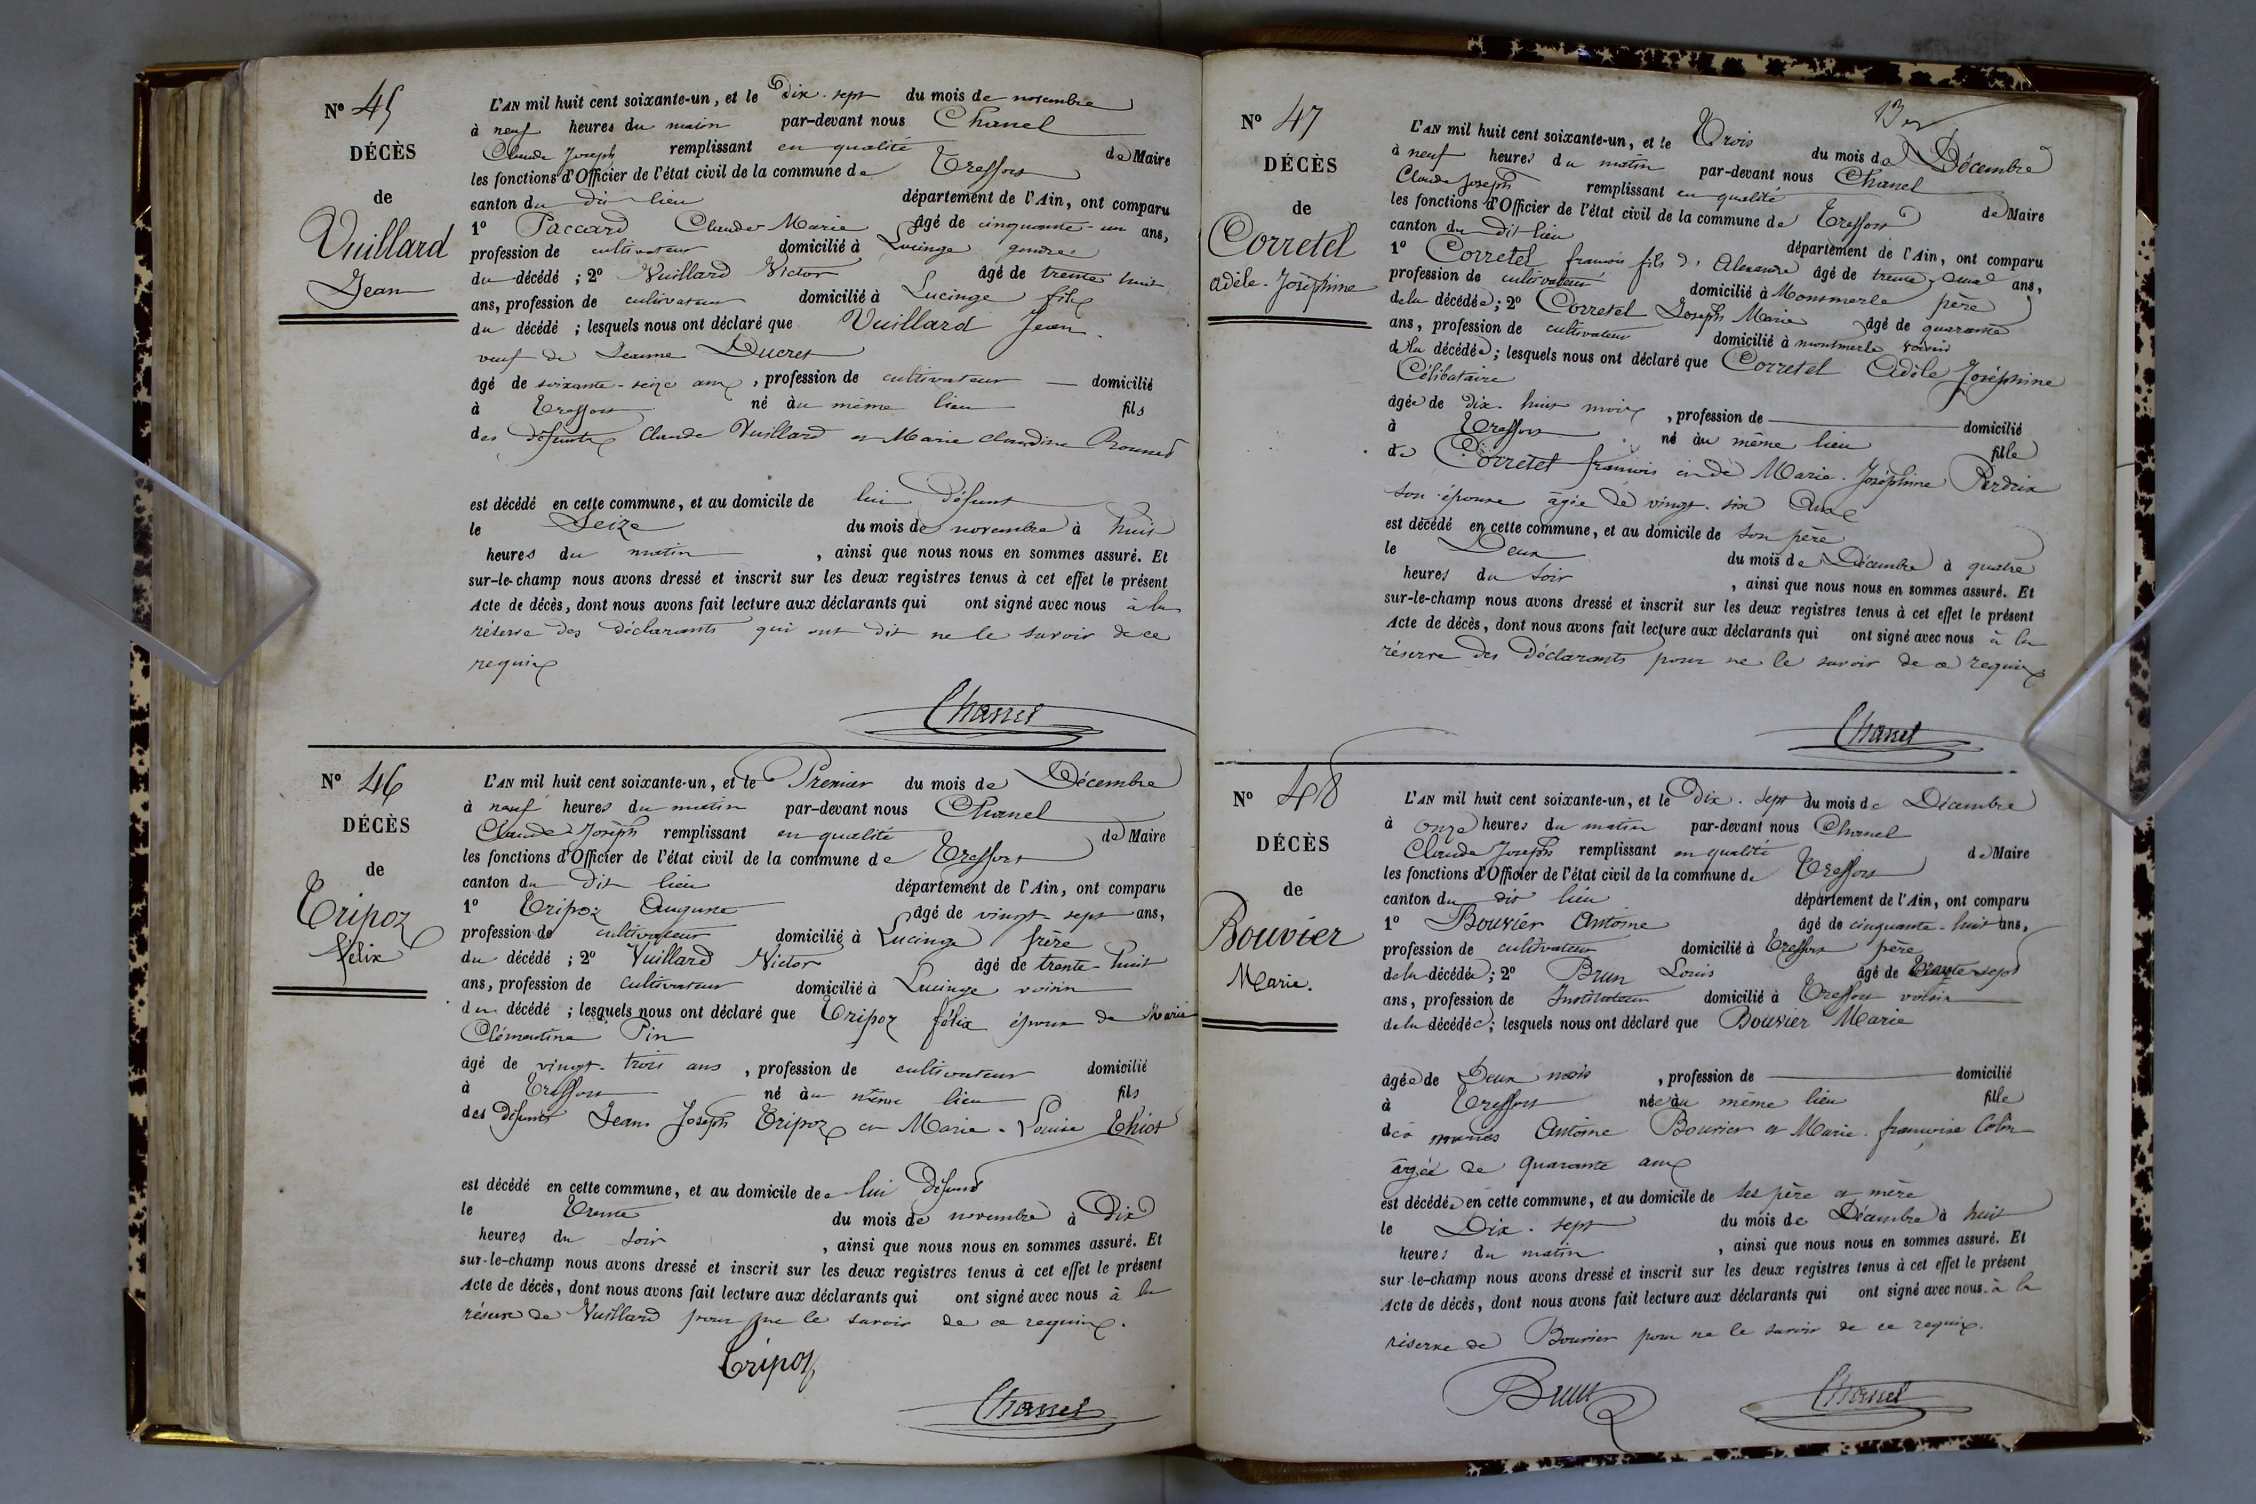 N° 45
DÉCÈS
de
Vuillard
Jean
L'AN mil huit cent soixante-un, et le dix-sept du mois de novembre
à neuf heures du matin par-devant nous Chanel
Claude Joseph remplissant en qualité de Maire
les fonctions d'Officier de l'état civil de la commune de Treffort
canton du dit lieu département de l'Ain, ont comparu
1° Paccard Claude Marie âgé de cinquante-un ans,
profession de cultivateur domicilié à Lucinge gendre
du décédé ; 2° Vuillard Victor âgé de trente huit
ans, profession de cultivateur domicilié à Lucinge fils
du décédé ; lesquels nous ont déclaré que Vuillard Jean
veuf de Jeanne Ducret
âgé de soixante-seize ans, profession de cultivateur domicilié
à Treffort né au même lieu fils
des défunts Claude Vuillard et Marie Claudine
est décédé en cette commune, et au domicile de lui défunt
le Seize du mois de novembre à huit
heures du matin, ainsi que nous nous en sommes assuré. Et
sur-le-champ nous avons dressé et inscrit sur les deux registres tenus à cet effet le présent
Acte de décès, dont nous avons fait lecture aux déclarants qui ont signé avec nous à la
réserve des déclarants qui ont dit ne le savoir de ce
requis
Chanel
N° 46
DÉCÈS
de
Tripoz
félix
L'AN mil huit cent soixante-un, et le Premier du mois de Décembre
à neuf heures du matin par-devant nous Chanel
Claude-Joseph remplissant en qualité de Maire
les fonctions d'Officier de l'état civil de la commune de Treffort
canton du dit lieu département de l'Ain, ont comparu
1° Tripoz Auguste âgé de vingt-sept ans,
profession de cultivateur domicilié à Lucinge frère
du décédé ; 2° Vuillard Victor âgé de trente-huit
ans, profession de cultivateur domicilié à Lucinge voisin
du décédé ; lesquels nous ont déclaré que Tripoz félix époux de Marie
Clémentine Pin
âgé de vingt-trois ans, profession de cultivateur domicilié
à Treffort né au même lieu fils
des défunts Jean Joseph Tripoz et Marie-Louise Chiot
est décédé en cette commune, et au domicile de lui défunt
le Trente du mois de novembre à Dix
heures du soir, ainsi que nous nous en sommes assuré. Et
sur-le-champ nous avons dressé et inscrit sur les deux registres tenus à cet effet le présent
Acte de décès, dont nous avons fait lecture aux déclarants qui ont signé avec nous à la
réserve de Vuillard pour ne le savoir de ce requis.
Tripoz
Chanel
N° 47
DÉCÈS
de
Corretel
adèle-Joséphine
L'AN mil huit cent soixante-un, et le Trois du mois de Décembre
à neuf heures du matin par-devant nous Chanel
Claude Joseph remplissant en qualité de Maire
les fonctions d'Officier de l'état civil de la commune de Treffort
canton du dit lieu département de l'Ain, ont comparu
1° Corretel françois fils d'Alexandre âgé de trente deux ans,
profession de cultivateur domicilié à Montmerle père
de la décédée ; 2° Corretel Joseph Marie âgé de quarante
ans, profession de cultivateur domicilié à montmerle voisin
de la décédée ; lesquels nous ont déclaré que Corretel Adèle Joséphine
Célibataire
âgée de dix-huit mois, profession de domicilié
à Treffort né au même lieu fille
de Corretel françois et de Marie-Joséphine Perdrix
son épouse âgée de vingt-six ans
est décédé en cette commune, et au domicile de son père
le Deux du mois de Décembre à quatre
heures du soir, ainsi que nous nous en sommes assuré. Et
sur-le-champ nous avons dressé et inscrit sur les deux registres tenus à cet effet le présent
Acte de décès, dont nous avons fait lecture aux déclarants qui ont signé avec nous à la
réserve des déclarants pour ne le savoir de ce requis
Chanel
N° 48
DÉCÈS
de
Bouvier
Marie.
L'AN mil huit cent soixante-un, et le dix-sept du mois de Décembre
à onze heures du matin par-devant nous Chanel
Claude Joseph remplissant en qualité de Maire
les fonctions d'Officier de l'état civil de la commune de Treffort
canton du dit lieu département de l'Ain, ont comparu
1° Bouvier Antoine âgé de cinquante-huit ans,
profession de cultivateur domicilié à Treffort père
de la décédée ; 2° Brun Louis âgé de trente-sept
ans, profession de Instituteur domicilié à Treffort voisin
de la décédée ; lesquels nous ont déclaré que Bouvier Marie
âgée de Deux mois, profession de domicilié
à Treffort née au même lieu fille
des mariés Antoine Bouvier et Marie-françoise Colin
âgée de quarante ans
est décédée en cette commune, et au domicile de ses père et mère
le Dix-sept du mois de Décembre à huit
heures du matin, ainsi que nous nous en sommes assuré. Et
sur-le-champ nous avons dressé et inscrit sur les deux registres tenus à cet effet le présent
Acte de décès, dont nous avons fait lecture aux déclarants qui ont signé avec nous à la
réserve de Bouvier pour ne le savoir de ce requis.
Brun
Chanel